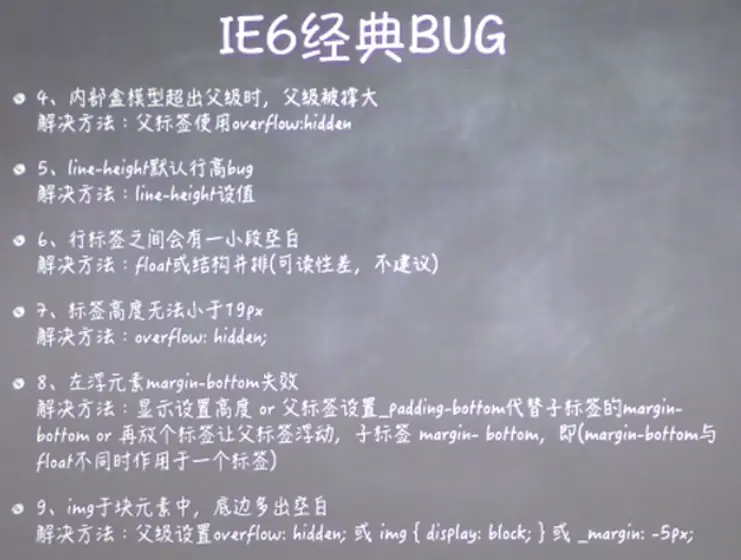 IE6经典BUG
4、内部盒模型超出父级时，父级被撑大
解决方法：父标签使用overflow:hidden
5、line-height默认行高bug
解决方法：line-height设值
6、行标签之间会有一小段空白
解决方法：float或结构并排(可读性差，不建议)
7、标签高度无法小于19px
解决方法：overflow: hidden;
8、左浮元素margin-bottom失效
解决方法：显示设置高度 or 父标签设置_padding-bottom代替子标签的margin-
bottom or 再放个标签让父标签浮动，子标签 margin- bottom，即(margin-bottom与
float不同时作用于一个标签)
9、img于块元素中，底边多出空白
解决方法：父级设置overflow: hidden; 或 img { display: block; } 或 _margin: -5px;